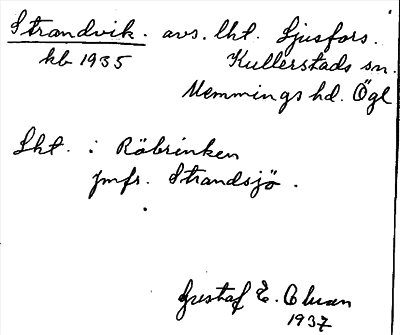 Strandvik. avs. lht. Ljusfors.
kb 1935 Kullerstads sn.
Memmings hd. Ögl
Lht. i Röbrinken
jmfr. Strandsjö.
Gustaf E.
1937